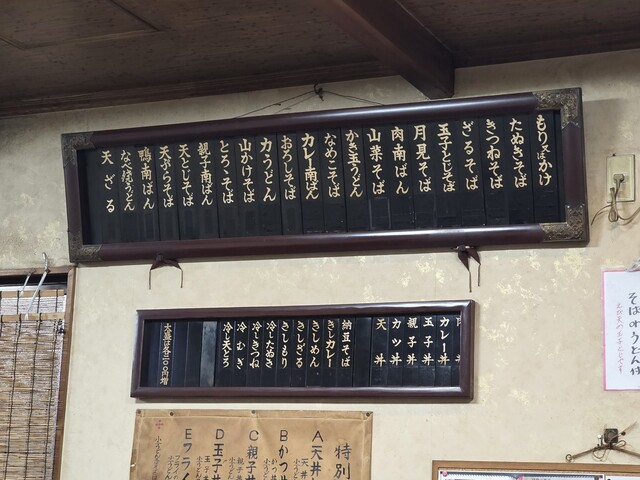 もり又はかけ
たぬきそば
きつねそば
ざるそば
玉子とじそば
月見そば
肉南ばん
山菜そば
かき玉うどん
なめこそば
カレー南ばん
おろしそば
力うどん
山かけそば
とろろそば
親子南ばん
天とじそば
天ぷらそば
鴨南ばん
なべ焼うどん
天ざる
肉丼
カレー丼
玉子丼
親子丼
カツ丼
天丼
納豆そば
きしカレー
きしめん
きしざる
きしもり
冷したぬき
冷しきつね
冷むぎ
冷し天とろ
大盛は各二〇〇円増
そば又はうどん付
特別
A天丼
Bかつ丼
C親子丼
D玉子丼
Eフライ